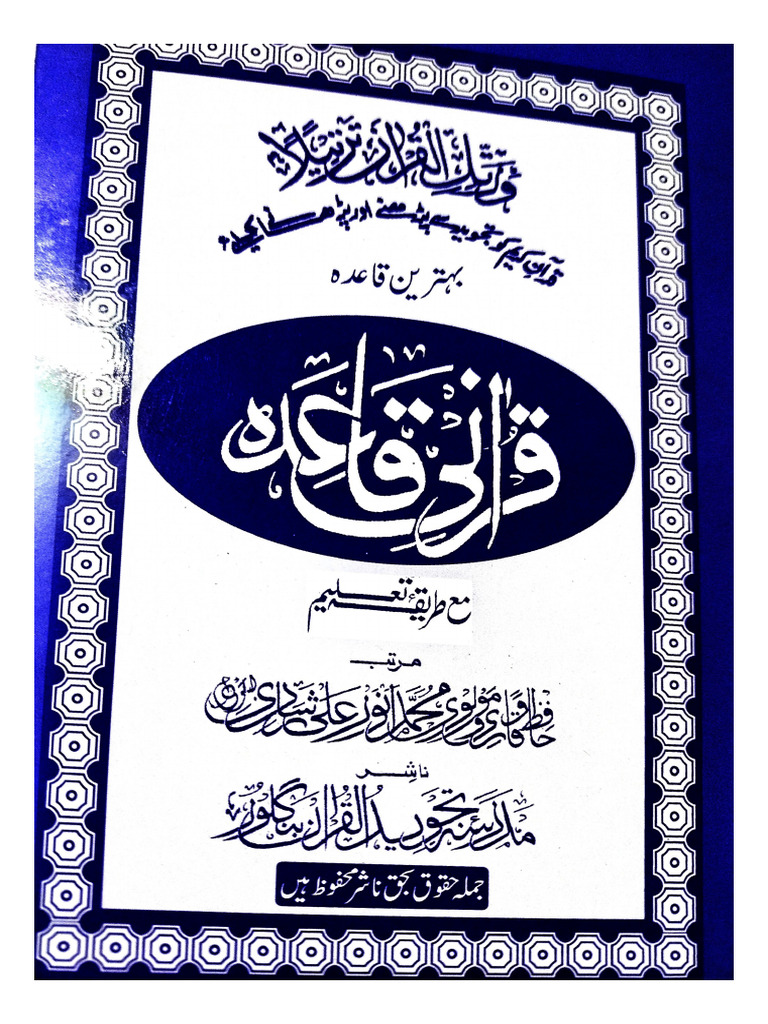 وَرَتِّلِ الْقُرْاٰنَ تَرْتِیْلًا
قرآن کریم کو تجوید سے پڑھنے اور پڑھانے کیلئے
بہترین قاعدہ
قُرْاٰنِی قَاعِدَہ
مع طریقۂ تعلیم
مرتب
حافظ وقاری مولوی محمد انور علی
ناشر
مدرسہ تجوید القرآن بنگلور
جملہ حقوق بحق ناشر محفوظ ہیں